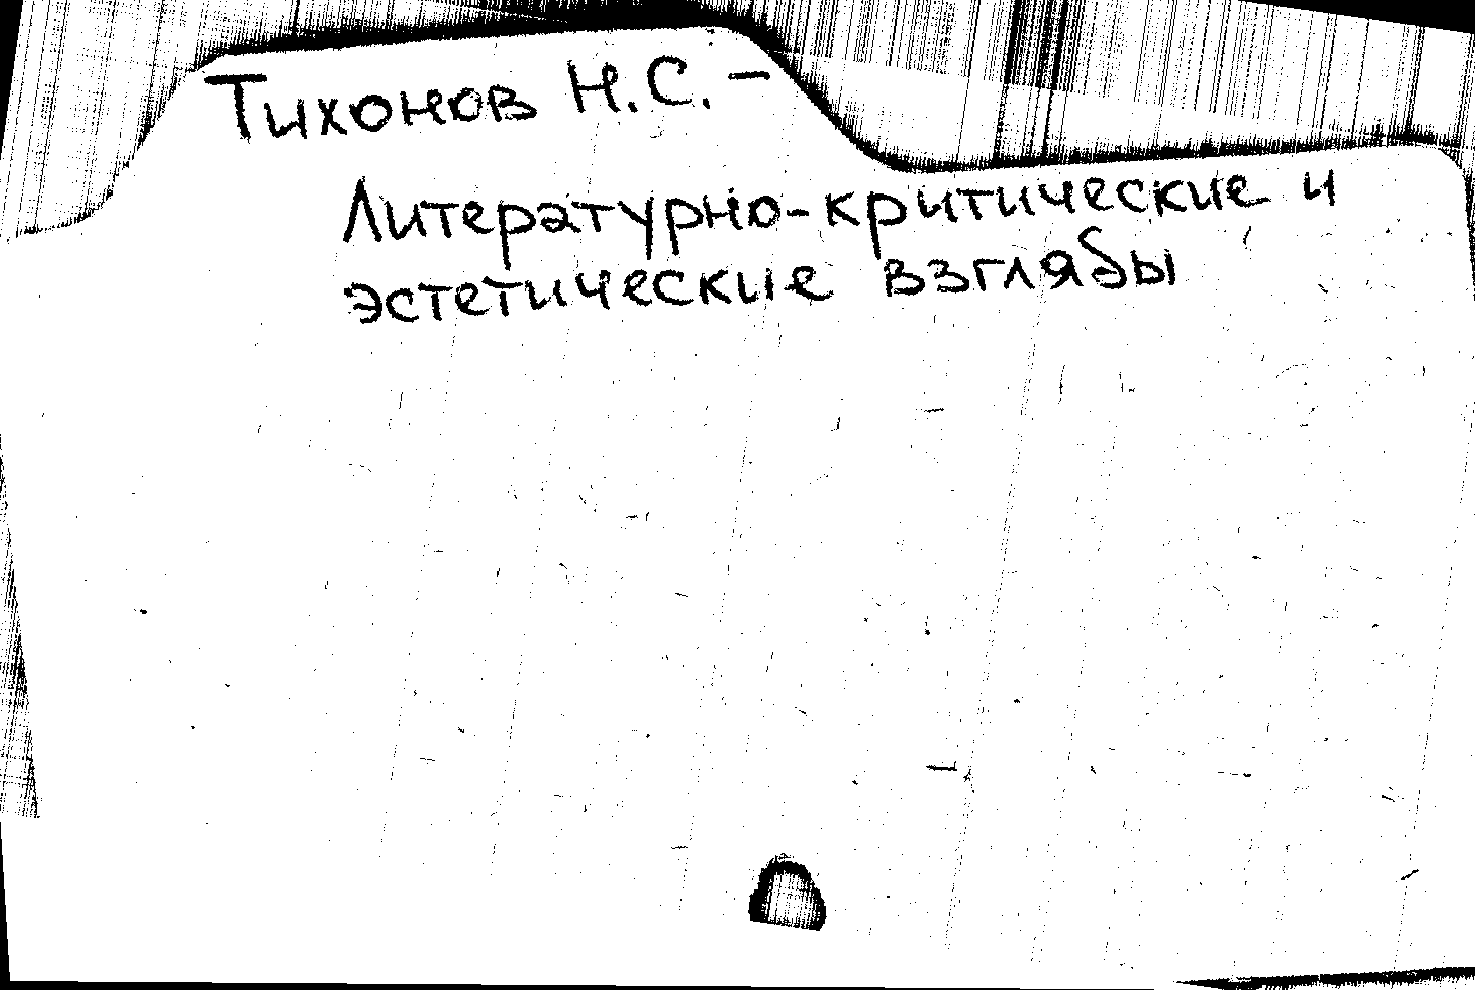 Тихонов Н.С. –
Литературно-критические и
эстетические взгляды